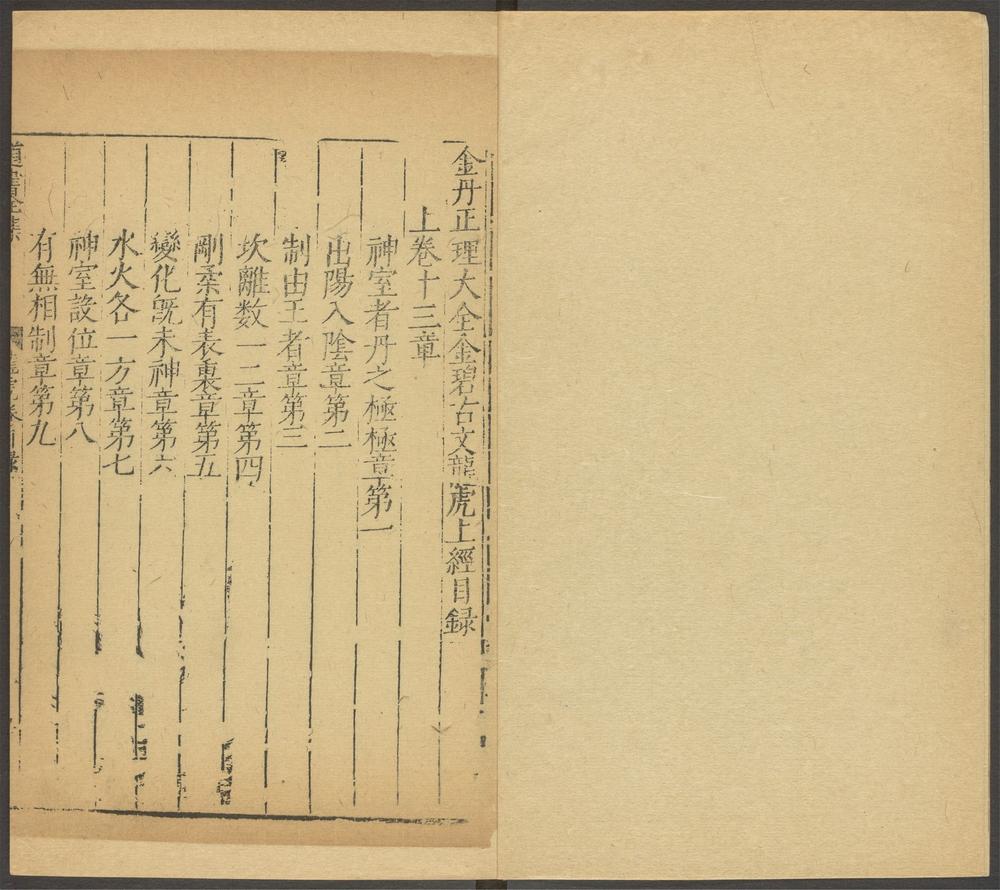 金丹正理大全金碧古文龍虎上經目録
上卷十三章
神室者丹之極極章第一
出陽入陰章第二
制由王者章第三
坎離数一二章第四
剛柔有表裏章第五
變化旣未神章第六
水火各一方章第七
神室設位章第八
有無相制章第九